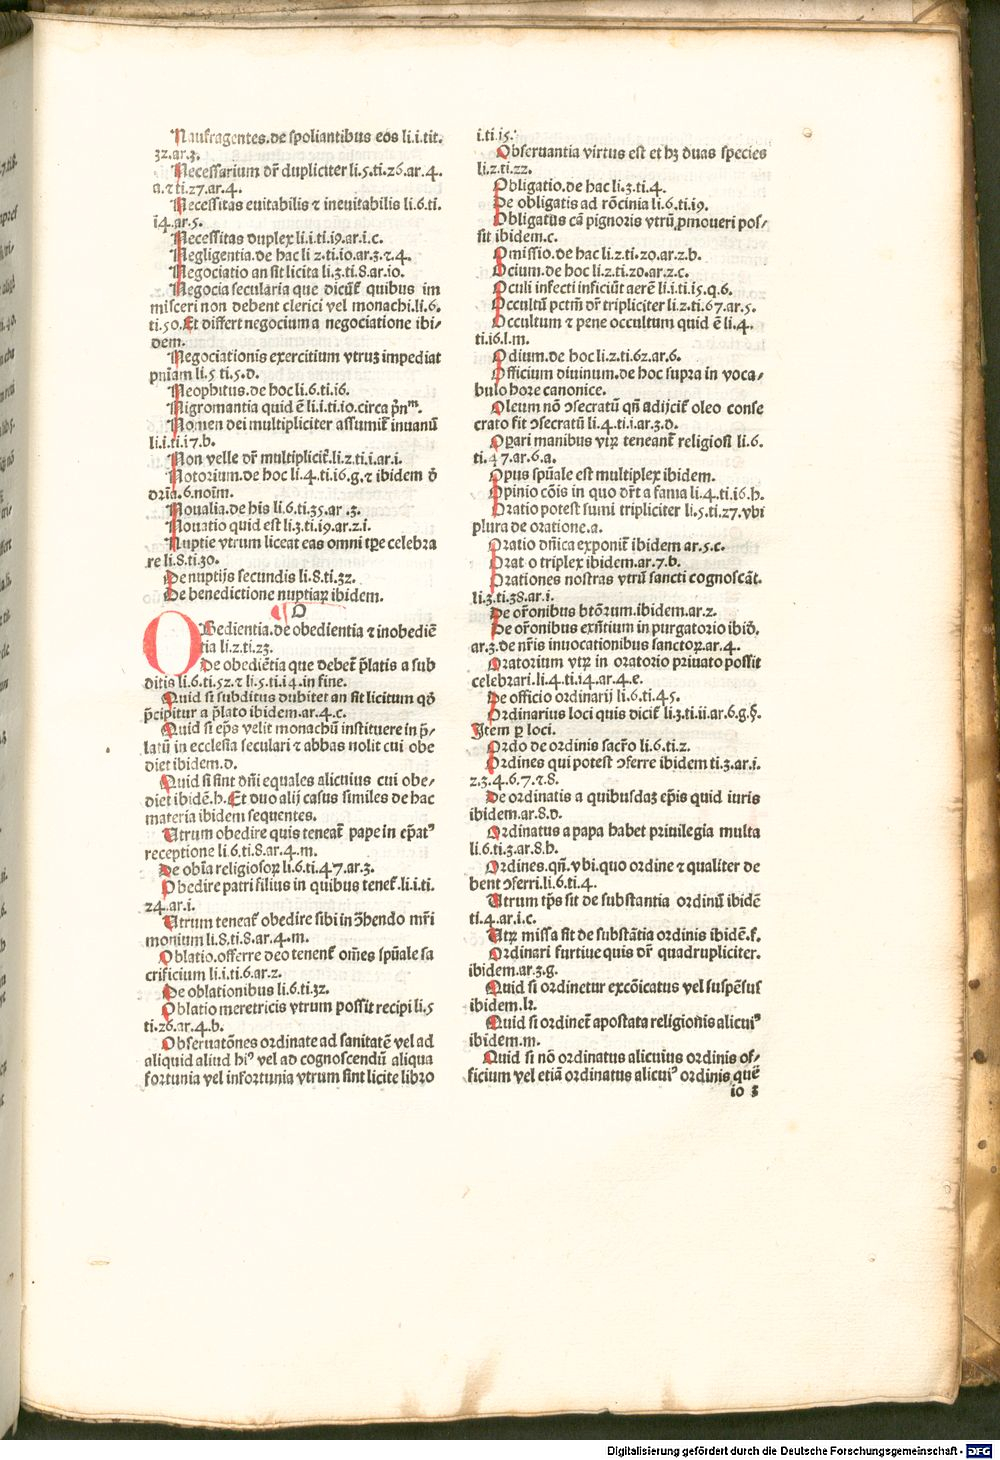 Naufragentes.de spoliantibus eos li.i.tit.
32.ar.3.
Necessarium dr̄ dupliciter li.5.ti.26.ar.4.
a.⁊ ti.27.ar.4.
Necessitas euitabilis ⁊ ineuitabilis li.6.ti.
i4.ar.5.
Necessitas duplex li.i.ti.i9.ar.i.c.
Negligentia.de hac li 2.ti.io.ar.3.⁊.4.
Negociatio an sit licita li.3.ti.8.ar.io.
Negocia secularia que dicūt̄ quibus im
misceri non debent clerici vel monachi.li.6.
ti.50.Et differt negocium a negociatione ibi-
dem.
Negociationis exercitium vtruꝫ impediat
pniam li.5 ti.5.d.
Neophitus.de hoc li.6.ti.i6.
Nigromantia quid ē li.i.ti.io.circa p̄nᵐ.
Nomen dei multipliciter assumit̄ inuanū
li.i.ti.i7.b.
Non velle dr̄ multiplicit̄.li.2.ti.i.ar.i.
Notorium.de hoc li.4.ti.i6.g.⁊ ibidem ō
dr̄ia.6.noīm.
Noualia.de his li.6.ti.35.ar .3.
Nouatio quid est li.3.ti.i9.ar.2.i.
Nuptie vtrum liceat eas omni tp̄e celebra
re li.8.ti.30.
De nuptijs secundis li.8.ti.32.
De benedictione nuptiaꝝ ibidem.
¶ O
OBedientia.de obedientia ⁊ inobediē
tia li.2.ti.23.
De obediētia que debet̄ p̄latis a sub
ditis li.6.ti.52.⁊ li.5.ti.i4.in fine.
Quid si subditus dubitet an sit licitum qō
p̄cipitur a p̄lato ibidem.ar.4.c.
Quid si ep̄s velit monachū instituere in p̄-
latū in ecclesia seculari ⁊ abbas nolit cui obe
diet ibidem.d.
Quid si sint dn̄i equales alicuius cui obe-
diet ibidē.h.Et duo alij casus similes de hac
materia ibidem sequentes.
Utrum obedire quis teneat̄ pape in ep̄at⁹
receptione li.6.ti.8.ar.4.m.
De obīa religiosoꝝ li.6.ti.47.ar.3.
Obedire patri filius in quibus tenet̄.li.i.ti.
24.ar.i.
Utrum teneat̄ obedire sibi in ꝯhendo mr̄i
monium li.8.ti.8.ar.4.m.
Oblatio.offerre deo tenent̄ om̄es spūale sa
crificium li.i.ti.6.ar.2.
De oblationibus li.6.ti.32.
Oblatio meretricis vtrum possit recipi li.5
ti.26.ar.4.b.
Obseruatōnes ordinate ad sanitatē vel ad
aliquid aliud hi⁹ vel ad cognoscendū aliqua
fortunia vel infortunia vtrum sint licite libro
i.ti.i5.
Obseruantia virtus est et hꝫ duas species
li.2.ti.22.
Obligatio.de hac li.3.ti.4.
De obligatis ad rōcinia li.6.ti.i9.
Obligatus cā pignoris vtrū ꝓmoueri pos-
sit ibidem.c.
Omissio.de hac li.2.ti.20.ar.2.b.
Ocium.de hoc li.2.ti.20.ar.2.c.
Oculi infecti inficiūt aerē li.i.ti.i5.q.6.
Occultū pctm̄ dr̄ tripliciter li.2.ti.67.ar.5.
Occultum ⁊ pene occultum quid ē li.4.
ti.i6.l.m.
Odium.de hoc li.2.ti.62.ar.6.
Officium diuinum.de hoc supra in voca-
bulo hore canonice.
Oleum nō ꝯsecratū qn̄ adijcit̄ oleo conse
crato fit ꝯsecratū li.4.ti.i.ar.3.d.
Oꝑari manibus vtꝝ teneant̄ religiosi li.6.
ti.47.ar.6.a.
Opus spūale est multiplex ibidem.
Opinio cōis in quo dr̄t a fama li.4.ti.i6.h.
Oratio potest sumi tripliciter li.5.ti.27.vbi
plura de oratione.a.
Oratio dn̄ica exponit̄ ibidem ar.5.c.
Orat o triplex ibidem.ar.7.b.
Orationes nostras vtrū sancti cognoscāt.
li.3.ti.38.ar.i.
De or̄onibus btōrum.ibidem.ar.2.
De or̄onibus exn̄tium in purgatorio ibid̄.
ar.3.de nr̄is inuocationibus sanctoꝝ.ar.4.
Oratorium vtꝝ in oratorio priuato possit
celebrari.li.4.ti.i4.ar.4.e.
De officio ordinarij li.6.ti.45.
Ordinarius loci quis dicit̄ li.3.ti.ii.ar.6.g.§.
Item ꝑ loci.
Ordo de ordinis sacr̄o li.6.ti.2.
Ordines qui potest ꝯferre ibidem ti.3.ar.i.
2.3.4.6.7.⁊.8.
De ordinatis a quibusdaꝫ ep̄is quid iuris
ibidem.ar.8.d.
Ordinatus a papa habet priuilegia multa
li.6.ti.3.ar.8.h.
Ordines.qn̄.vbi.quo ordine ⁊ qualiter de
bent ꝯferri.li.6.ti.4.
Utrum tp̄s sit de substantia ordinū ibidē
ti.4.ar.i.c.
Utꝝ missa sit de substātia ordinis ibidē.f.
Ordinari furtiue quis dr̄ quadrupliciter.
ibidem.ar.3.g.
Quid si ordinetur excōicatus vel suspēsus
ibidem.k.
Quid si ordinet̄ apostata religionis alicui⁹
ibidem.m.
Quid si nō ordinatus alicuius ordinis of-
ficium vel etiā ordinatus alicui⁹ ordinis quē
io 3
Digitalisierung gefördert durch die Deutsche Forschungsgemeinschaft - DFG